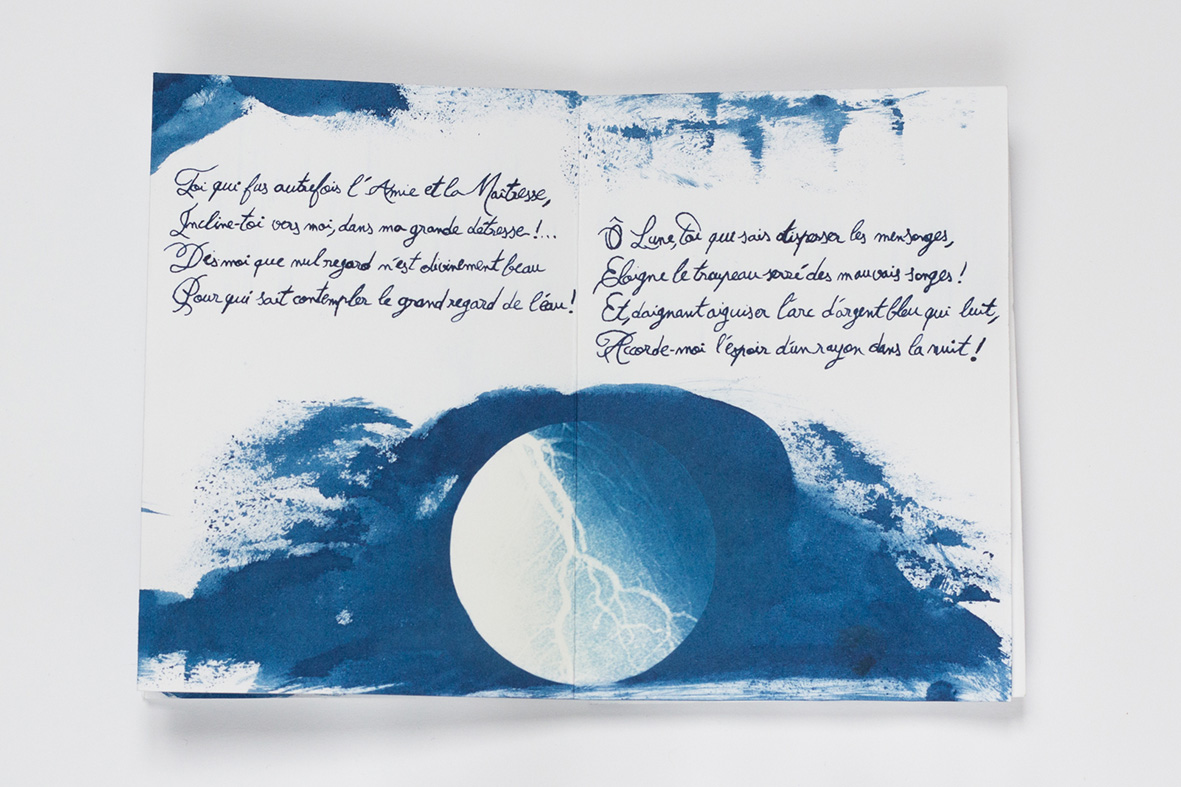 Toi qui fus autrefois l'Amie et la Maîtresse,
Incline-toi vers moi, dans ma grande détresse !...
Dis moi que nul regard n'est divinement beau
Pour qui sait contempler le grand regard de l'eau !
Ô Lune, toi que sais disperser les mensonges,
Éloigne le troupeau serré des mauvais songes !
Et, daignant aiguiser l'arc d'argent bleu qui luit,
Accorde-moi l'espoir d'un rayon dans la nuit !